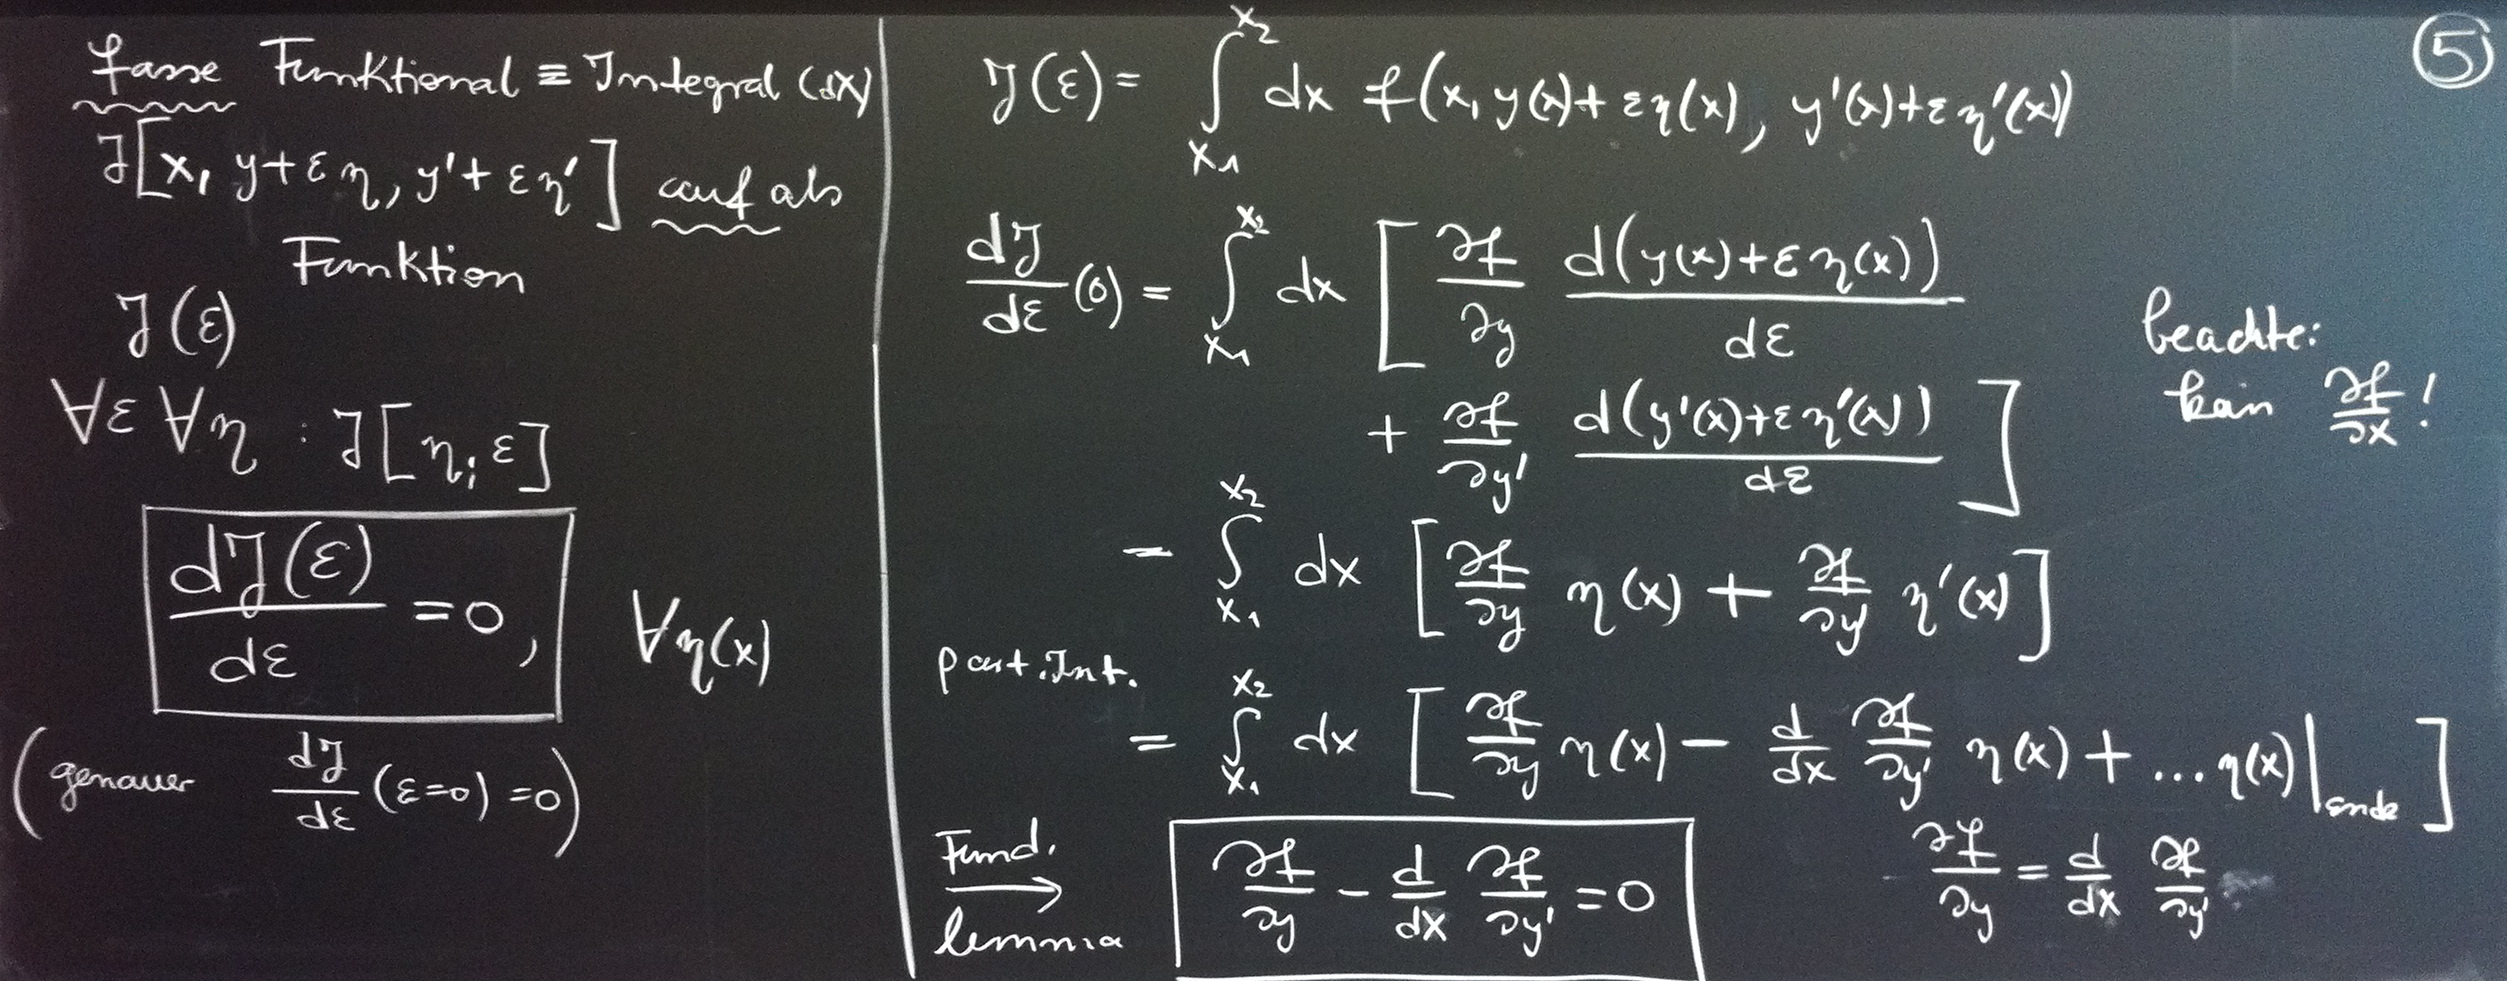 fasse Funktional ≡ Integral (dx)
J[x, y+εη, y'+εη'] auf als
Funktion
J(ε)
∀ε ∀η : J[η; ε]
dJ(ε)/dε = 0, ∀η(x)
(genauer dJ/dε (ε=0) = 0)
⑤
J(ε) = ∫_{x₁}^{x₂} dx f(x, y(x)+εη(x), y'(x)+εη'(x))
dJ/dε (0) = ∫_{x₁}^{x₂} dx [ ∂f/∂y d(y(x)+εη(x))/dε
+ ∂f/∂y' d(y'(x)+εη'(x))/dε ]
beachte:
kein ∂f/∂x!
= ∫_{x₁}^{x₂} dx [ ∂f/∂y η(x) + ∂f/∂y' η'(x) ]
part. Int.
= ∫_{x₁}^{x₂} dx [ ∂f/∂y η(x) − d/dx ∂f/∂y' η(x) + ... η(x)|_{Ende} ]
Fund.
lemma
→ ∂f/∂y − d/dx ∂f/∂y' = 0
∂f/∂y = d/dx ∂f/∂y'